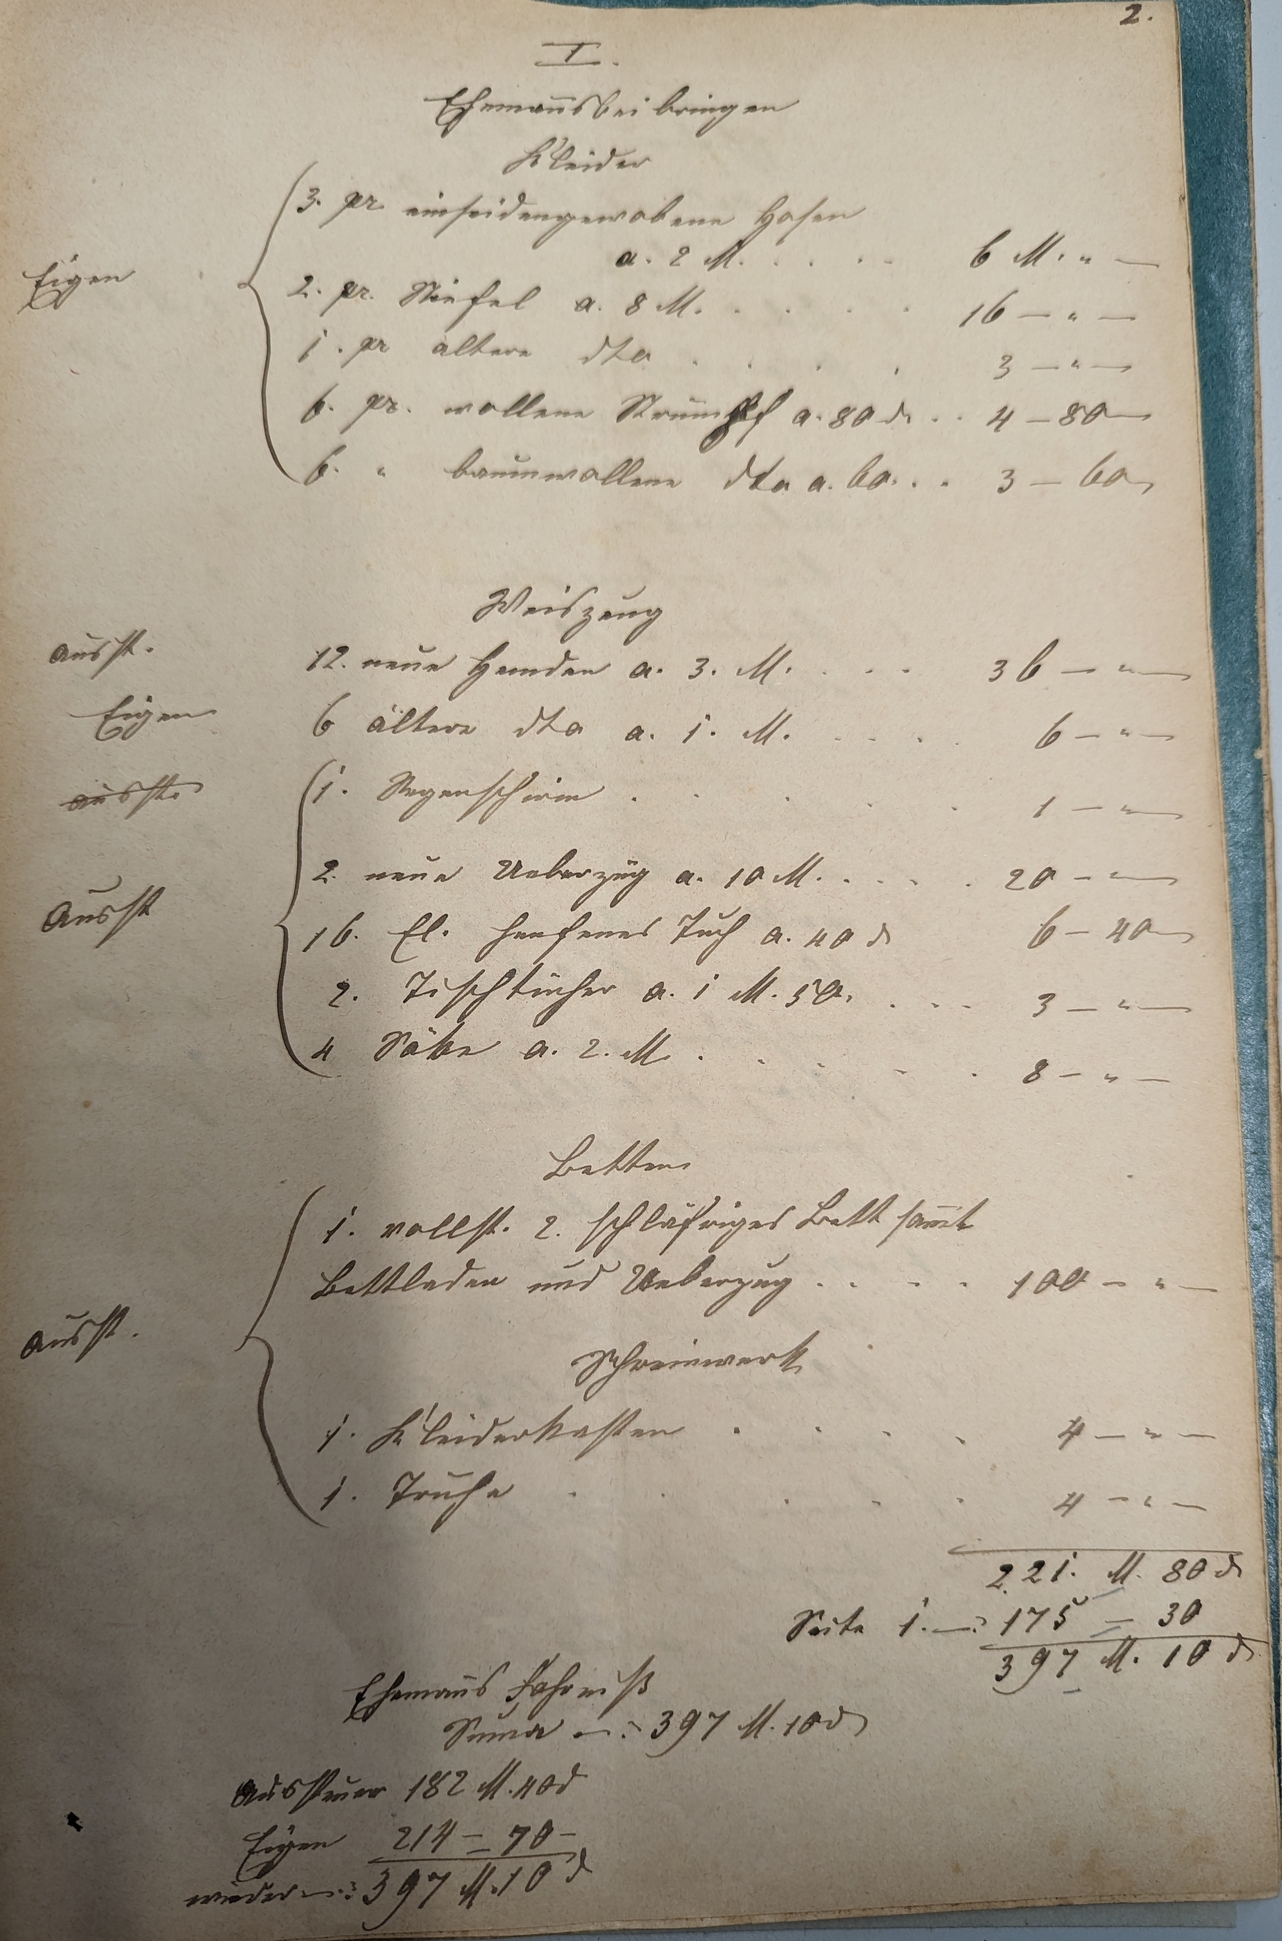 2.
I.
Ehemañsbeibringen
Kleider
3. pr. einseidengewobene Hosen
a. 2 M. . . . . 6 M. " —
Eigen
2. pr. Stiefel a. 8 M. . . . . 16 — " —
1. pr ältere dto . . . . 3 — " —
6. pr. wollene Strümpf a. 80 d. . . 4 — 80 —
6. " baumwollene dto a. 60. . . 3 — 60
Weiszeug
Ausst. 12. neue Hemden a. 3. M. . . . 36 — " —
Eigen 6 ältere dto a. 1. M. . . . . 6 — " —
Ausst. 1. Regenschirm . . . . . 1 — " —
2. neue Ueberzüg a. 10 M. . . . . 20 — " —
Ausst
16. El. henfenes Tuch a. 40 d 6 — 40
2. Tischtücher a. 1 M. 50. . . . 3 — " —
4 Säke a. 2. M. . . . . . 8 — " —
Betten
1. vollst. 2. schläfriges Bett sam̃t
Bettladen und Ueberzug . . . . 100 — " —
Ausst.
Schreinwerk
1. Kleiderkasten . . . . 4 — " —
1. Truhe . . . . . 4 — " —
221. M. 80 d
Seite 1. —: 175 — 30
397 M. 10 d
Ehemañs Fahrniß
Suma —: 397 M. 10 d
Aussteuer 182 M. 40 d
Eigen 214 — 70 —
wieder —: 397 M. 10 d